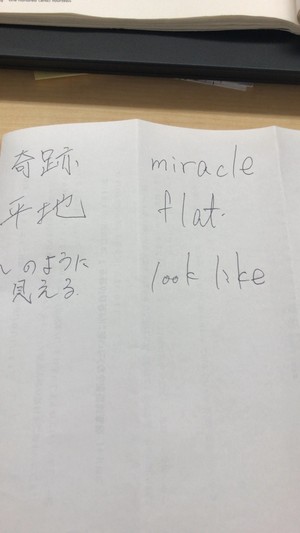 奇跡 miracle
平地 flat.
〜のように look like
見える